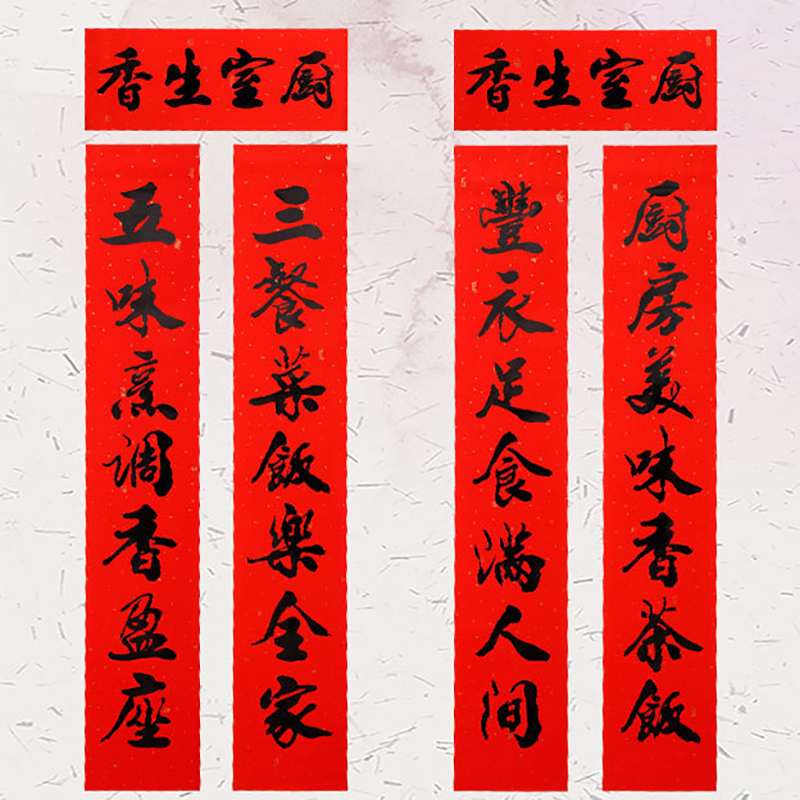 厨室生香
厨房美味香茶飯
豐衣足食满人间
厨室生香
三餐菜飯樂全家
五味烹调香盈座